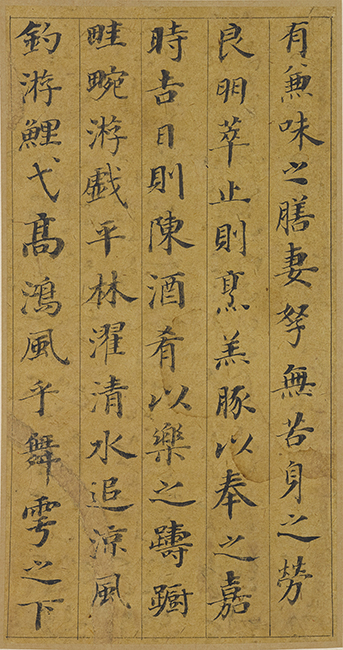 有兼味之膳妻孥無苦身之勞
良朋萃止則烹羔豚以奉之嘉
時吉日則陳酒肴以樂之躊躕
畦畹游戲平林濯清水追涼風
釣游鯉弋髙鴻風乎舞雩之下